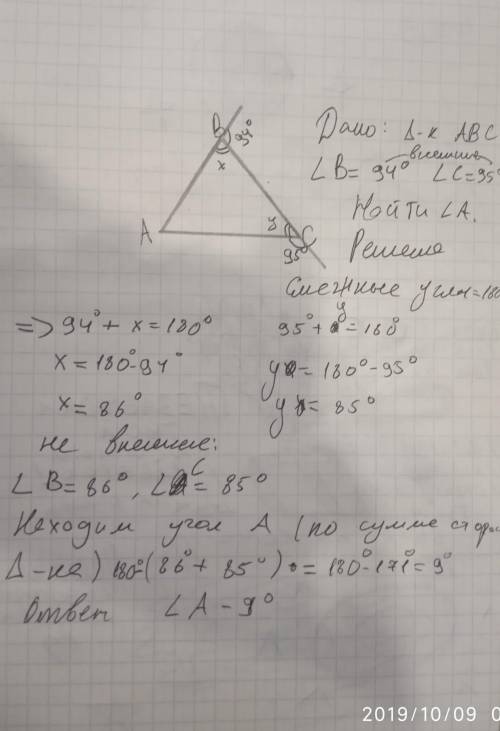 B 94°
x
A
y
C
95°
Дано: Δ-к ABC
внешние
∠B= 94° ∠C=95°
Найти ∠A.
Решение
Смежные углы=180
=> 94°+ x = 180°
x = 180°-94°
x = 86°
95°+ y = 180°
y = 180°-95°
y = 85°
не внешние:
∠B=86°, ∠C= 85°
Находим угол A (по сумме сторо
Δ-ка) 180°-(86°+ 85°) = 180°-171°=9°
Ответ ∠A - 9°
2019/10/09 0